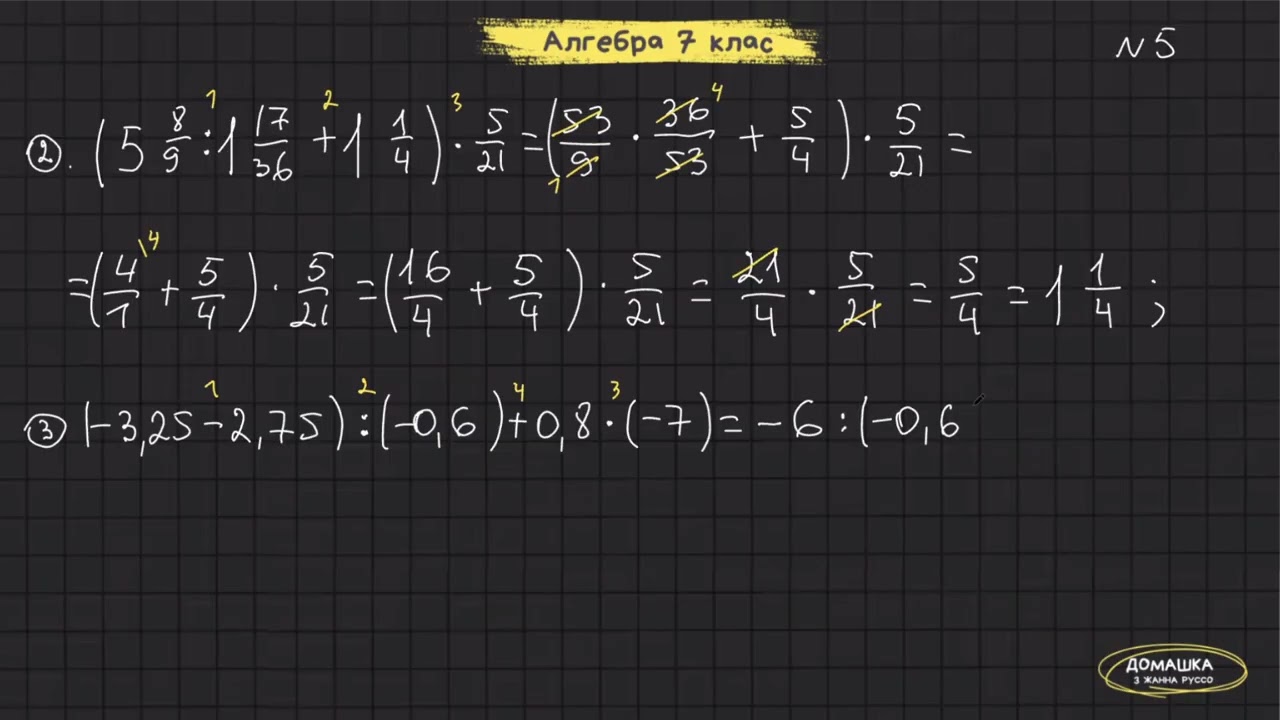 Алгебра 7 клас
N 5
1 2 3 4
②. (5 8/9 : 1 17/36 + 1 1/4) · 5/21 = (53/9 · 36/53 + 5/4) · 5/21 =
1
\4
= (4/1 + 5/4) · 5/21 = (16/4 + 5/4) · 5/21 = 21/4 · 5/21 = 5/4 = 1 1/4 ;
1 2 4 3
③ (-3,25 - 2,75) : (-0,6) + 0,8 · (-7) = -6 : (-0,6
ДОМАШКА
З ЖАННА РУССО